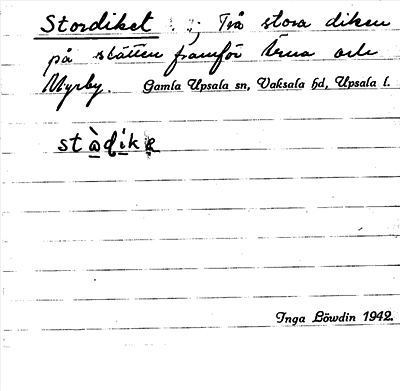 Stordiket . ; Två stora diken
på slätten framför Ärna och
Myrby. Gamla Upsala sn, Vaksala hd, Upsala l.
Inga Löwdin 1942.